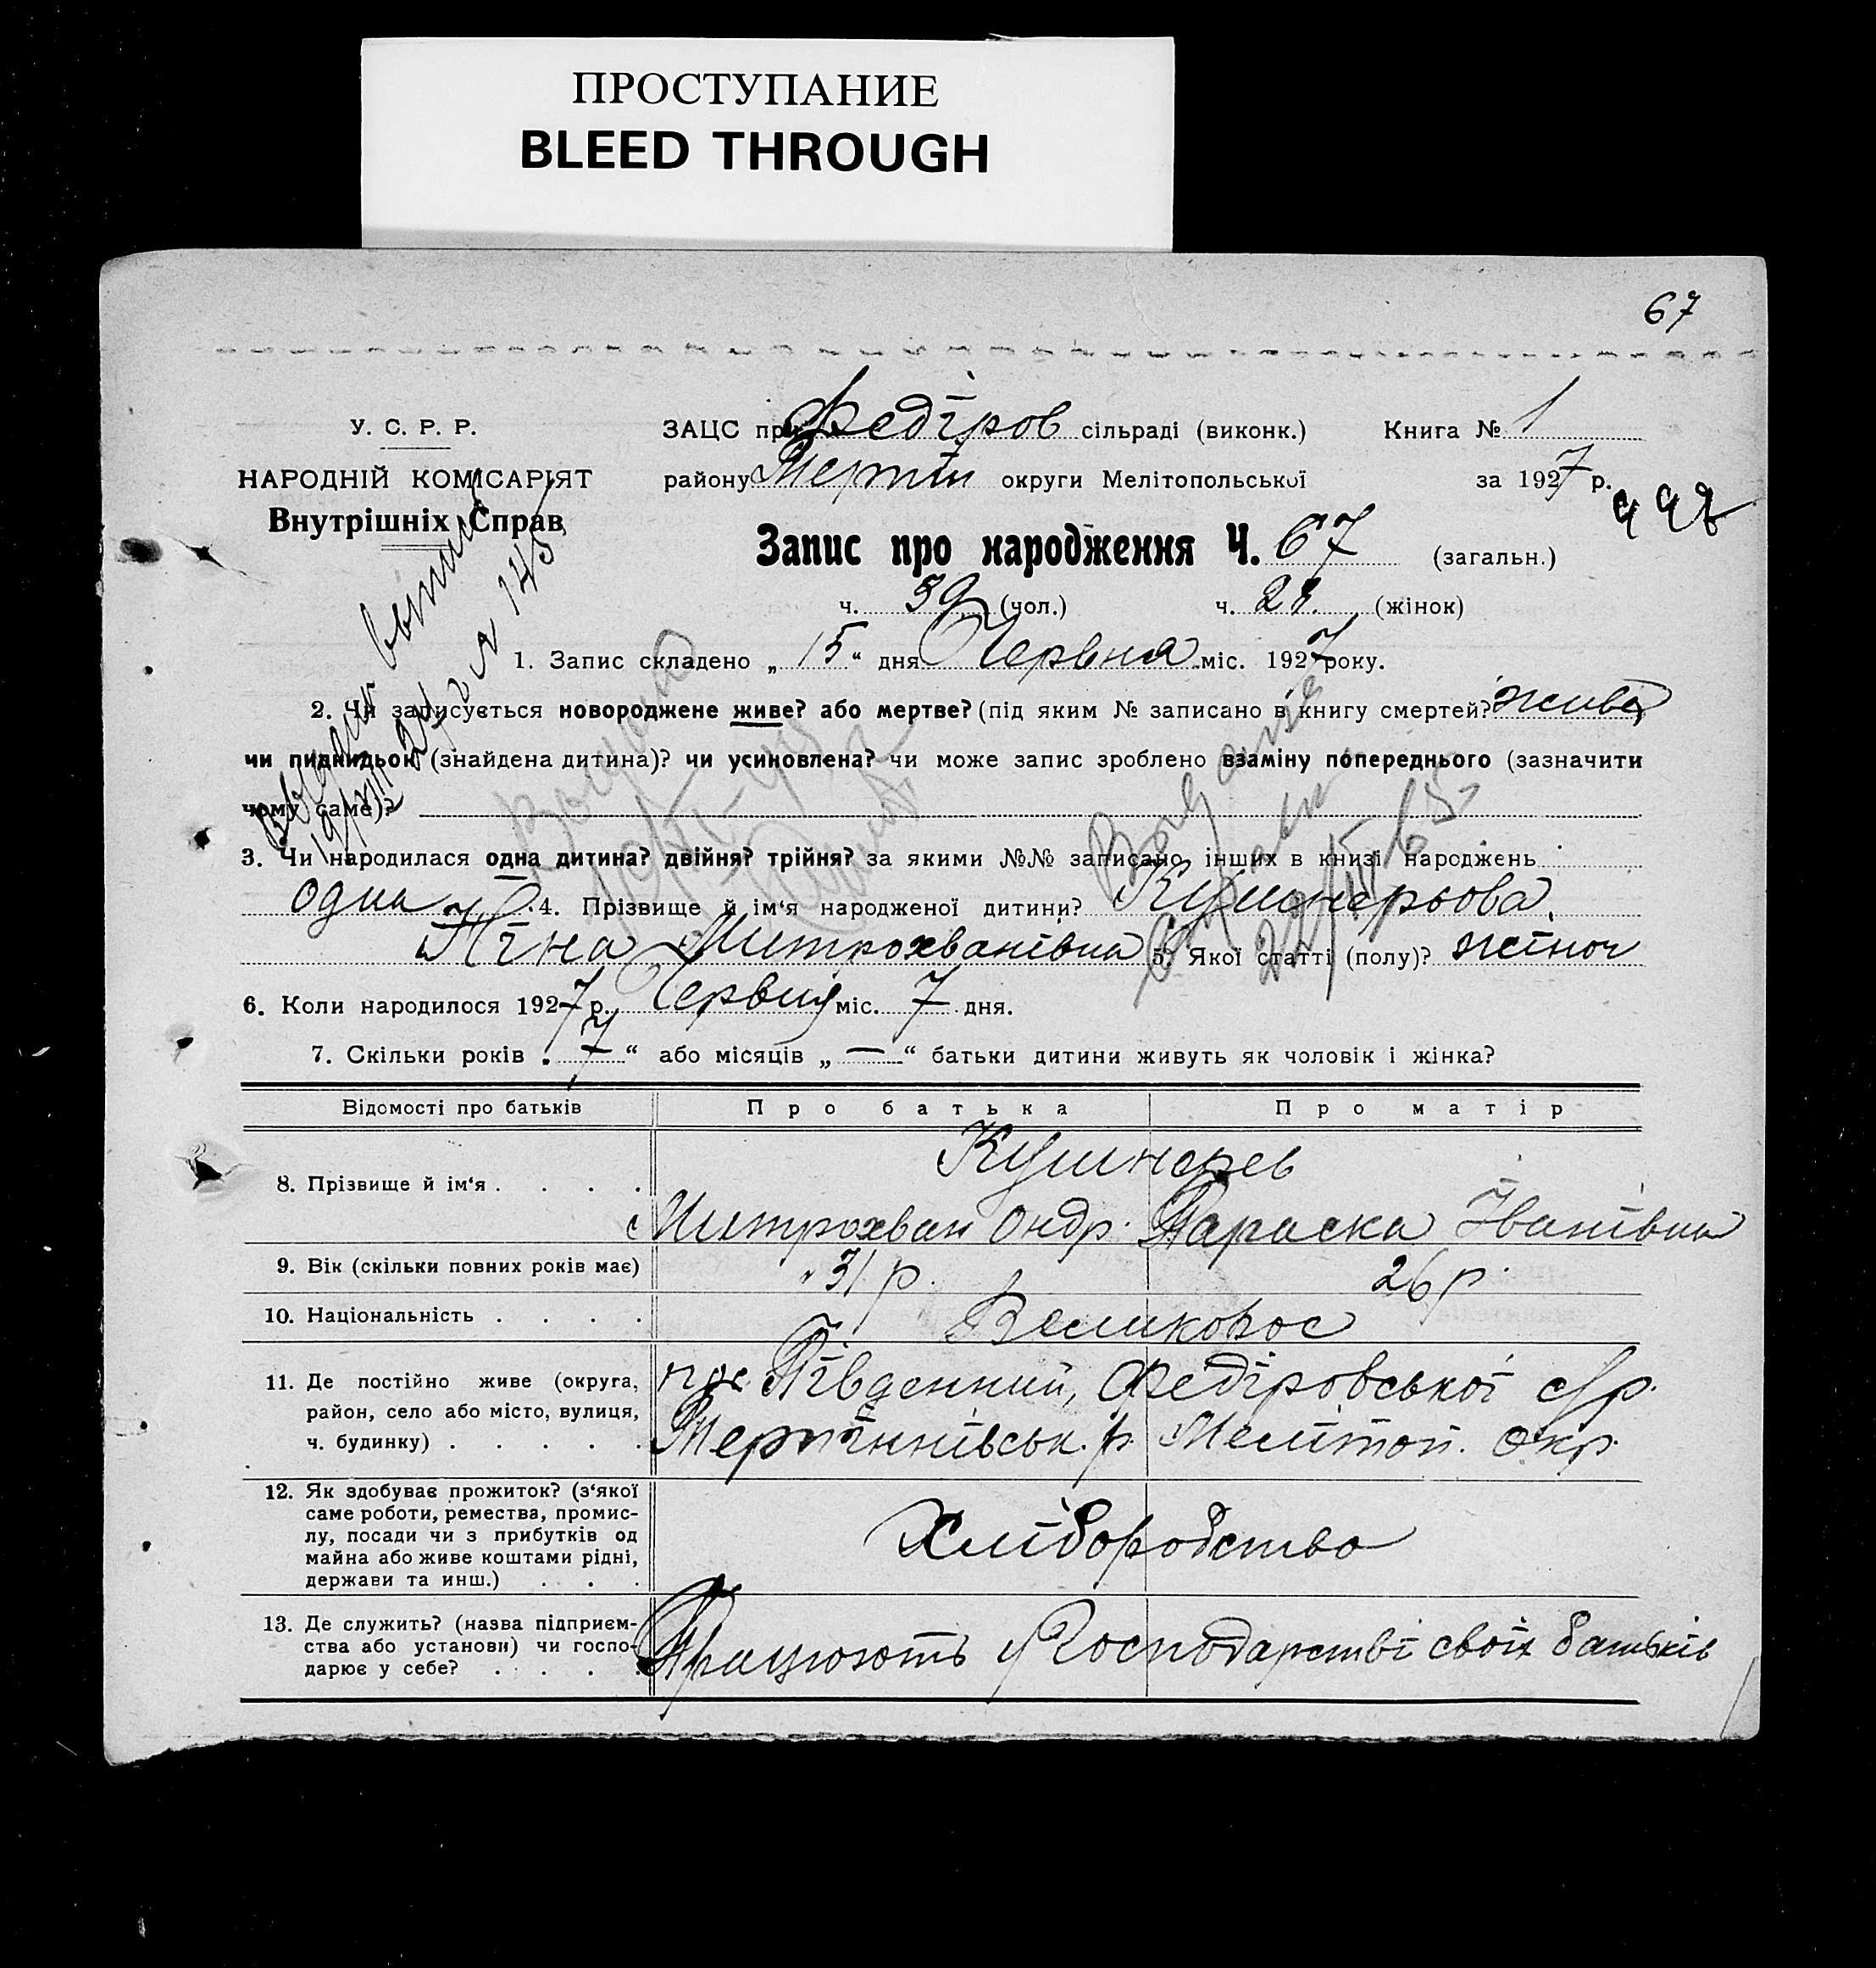 ПРОСТУПАНИЕ
BLEED THROUGH
67
У. С. Р. Р.
ЗАЦС при Федіров сільраді (виконк.) Книга № 1
НАРОДНІЙ КОМІСАРІЯТ
району Терпін округи Мелітопольської за 1927 р.
Внутрішніх Справ
Запис про народження Ч. 67 (загальн.)
ч. 39 (чол.) ч. 28. (жінок)
1. Запис складено „ 15 “ дня Червня міс. 1927 року.
2. Чи записується новороджене живе? або мертве? (під яким № записано в книгу смертей? жива
чи пидкидьок (знайдена дитина)? чи усиновлена? чи може запис зроблено взаміну попереднього (зазначити
чому саме)?
3. Чи народилася одна дитина? двійня? трійня? за якими №№ записано інших в книзі народжень
одна 4. Прізвище й ім‘я народженої дитини? Кушнерьова
Ніна Митрохванівна 5. Якої статті (полу)? жіноч
6. Коли народилося 1927 р. Червня міс. 7 дня.
7. Скільки років „ 7 “ або місяців „ — “ батьки дитини живуть як чоловік і жінка?
Відомості про батьків Про батька Про матір
Кушнерев
8. Прізвище й ім‘я . . . .
Митрохван Ондр. Параска Іванівна
9. Вік (скільки повних років має) 31 р. 26 р.
10. Національність . . . . Великорос
11. Де постійно живе (округа, пос. Південний, Федіровської с/р.
район, село або місто, вулиця,
ч. будинку) . . . . . Терпіннівськ. р. Мелітоп. окр.
12. Як здобуває прожиток? (з‘якої
саме роботи, ремества, промис-
лу, посади чи з прибутків од Хліборобство
майна або живе коштами рідні,
держави та инш.) . . .
13. Де служить? (назва підприєм-
ства або установи) чи госпо- Працюють у господарстві своїх батьків
дарює у себе? . . . .